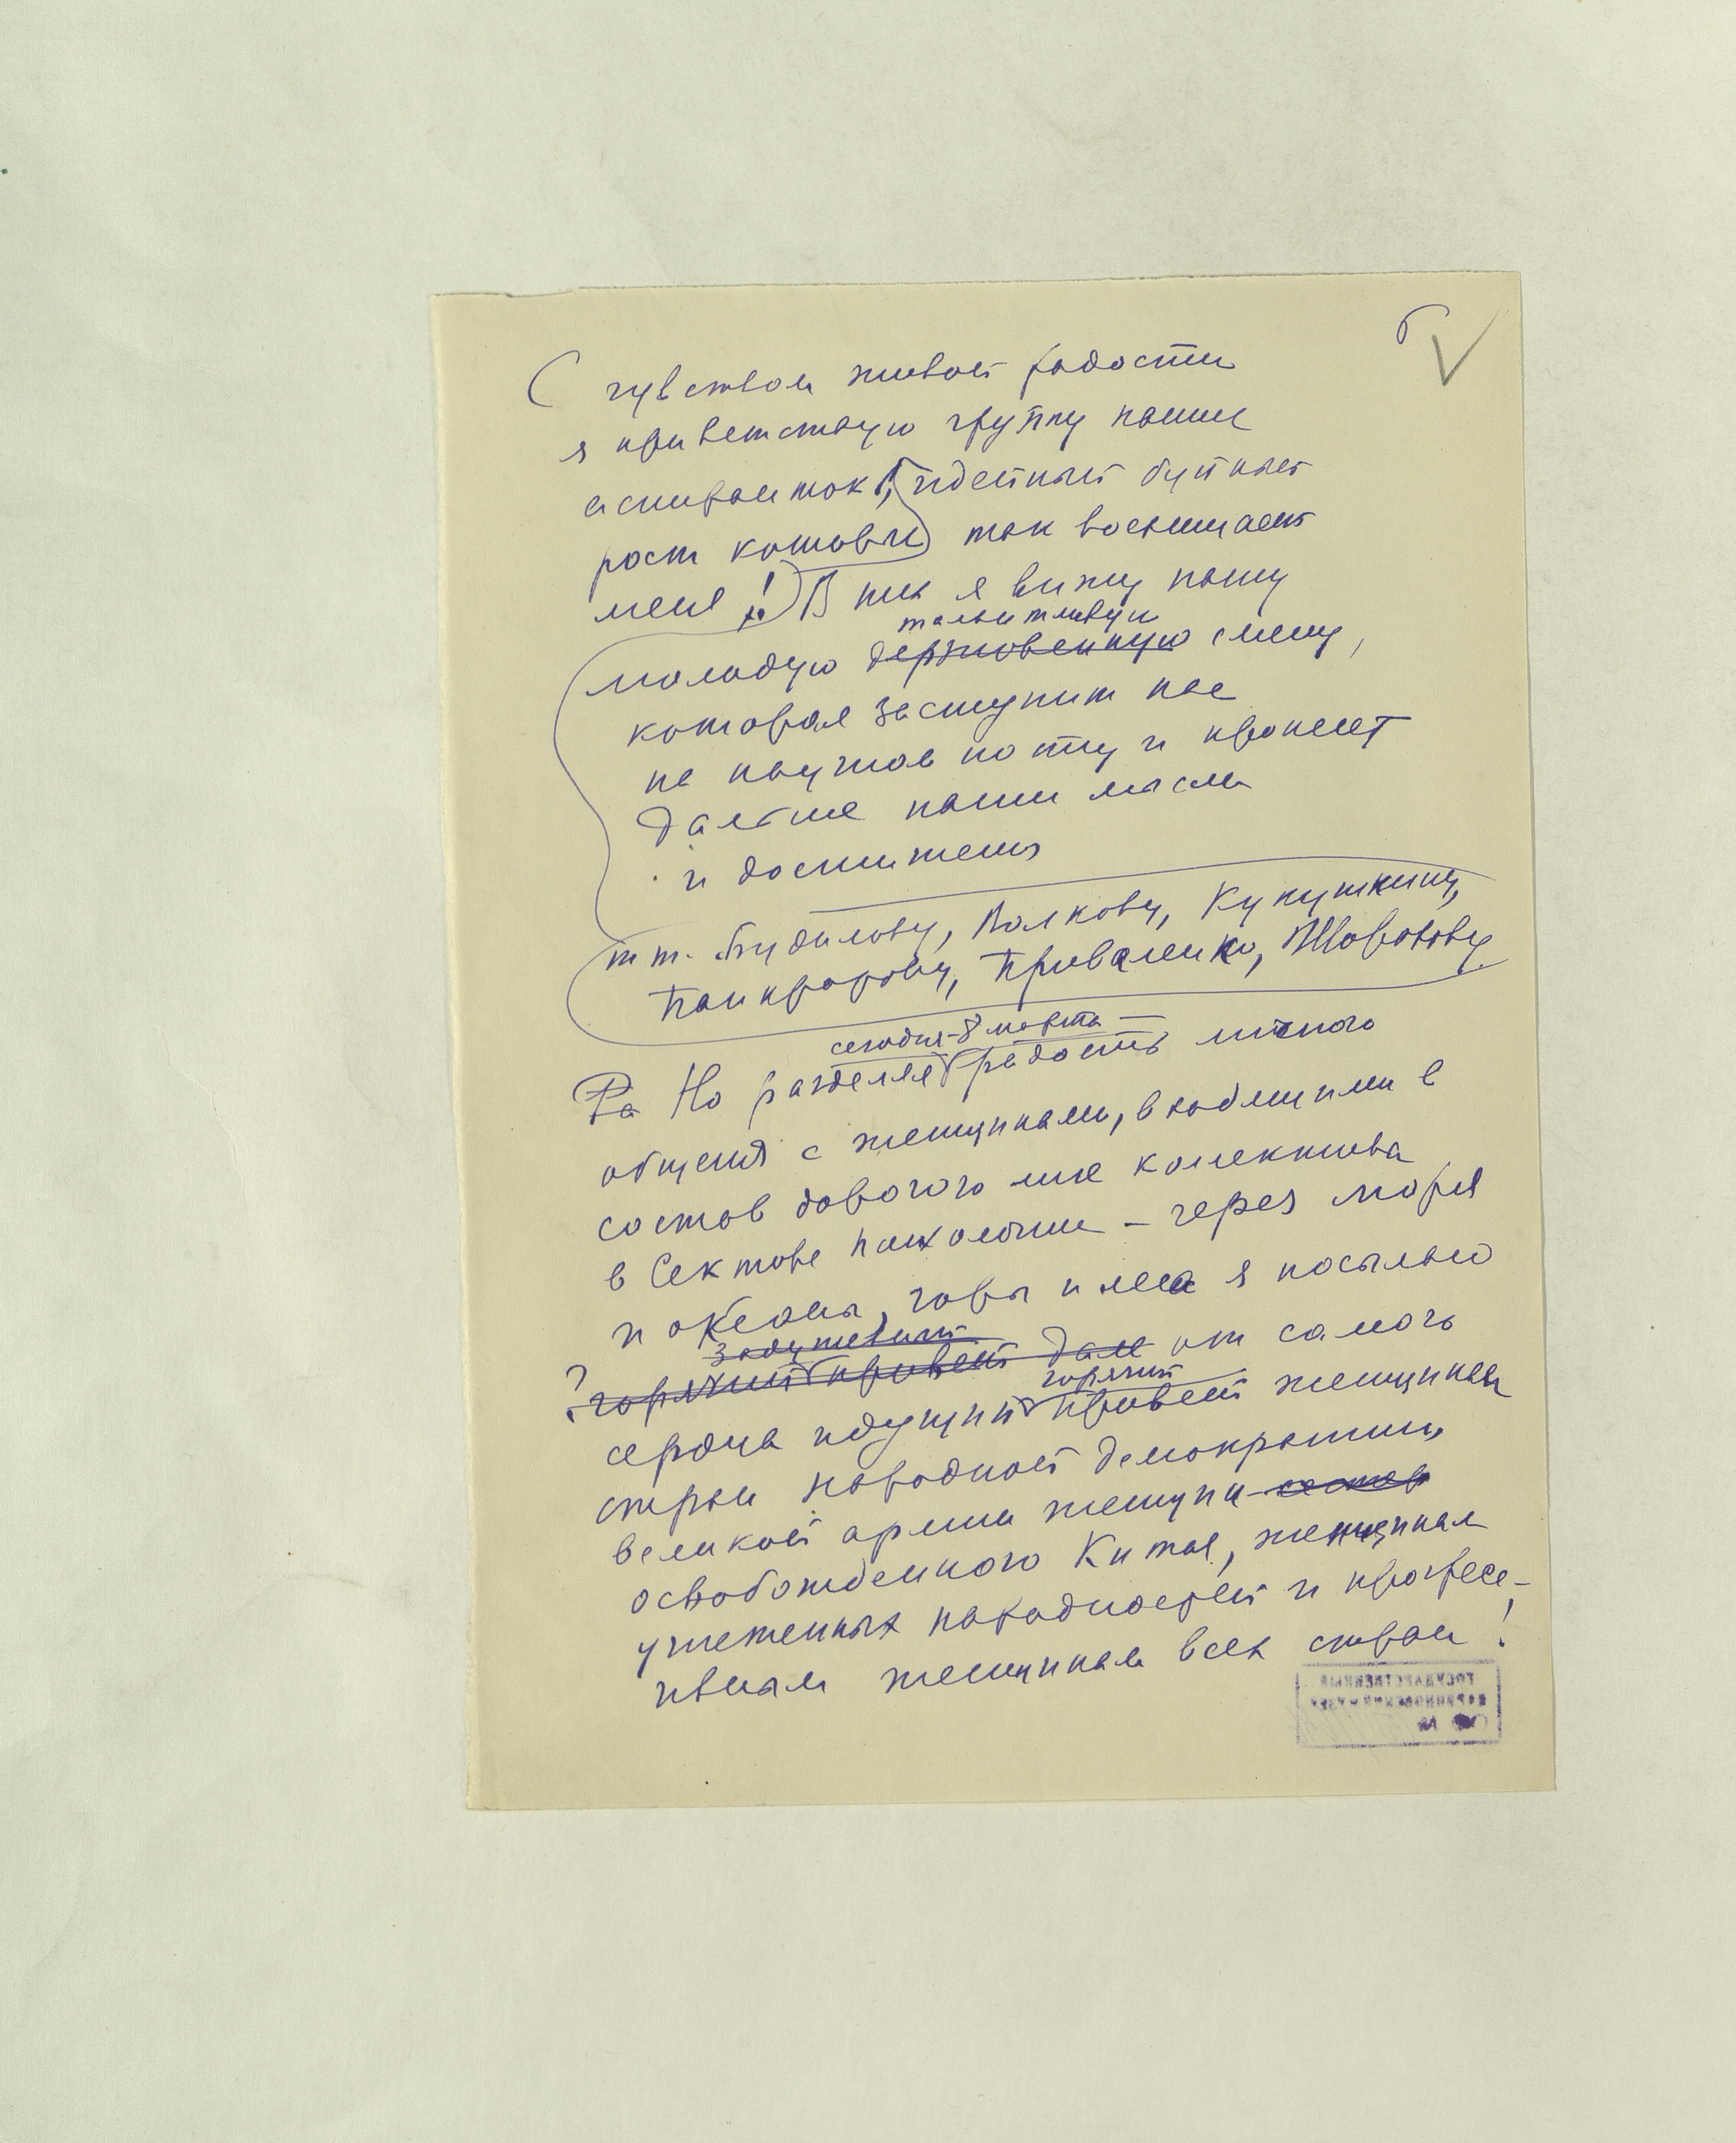 6
С чувством живой радости
я приветствую группу наших
аспиранток, идейный буйный
рост которых так восхищает
меня! В них я вижу нашу
талантливую
молодую дерзновенную смену,
которая заступит нас
на научном посту и пронесет
дальше наши мысли
и достижения
т.т. Будилову, Волкову, Кукушкину,
Панкратову, Приваленко, Шорохову
сегодня – 8 марта –
Ра Но разделяя радость личного
общения с женщинами, входящими в
состав дорогого мне коллектива
в Секторе психологии – через моря
и океаны, горы и леса я посылаю
задушевный
? горячий привет дале от самого
горячий
сердца идущий привет женщинам
стран народной демократии,
великой армии женщин состав
освобожденного Китая, женщинам
угнетенных народностей и прогресс-
ивным женщинам всех стран!